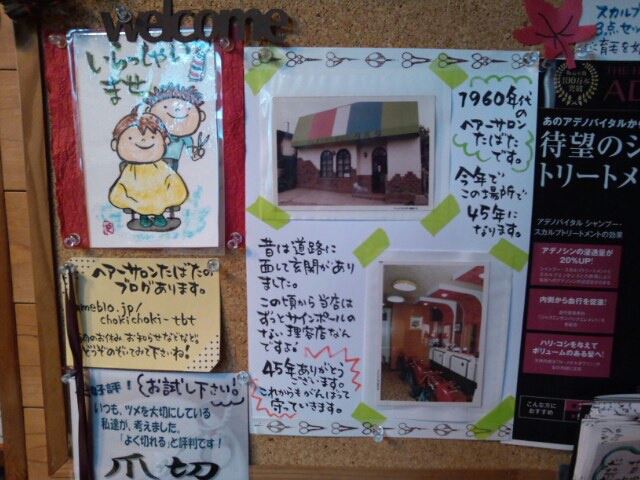 welcome
いらっしゃい
ませ
1960年代
の
ヘアーサロン
たばた
です。
今年で
この場所で
45年に
なります。
昔は道路に
面して玄関があり
ました。
この頃から当店は
ずっとサインポールの
ない理容店なん
ですよ!
45年ありがとう
ございます。
これからもがんばって
守っていきます。
ヘアーサロンたばたの
ブログあります。
ameblo.jp/
chokichoki-tbt
お休み お知らせなどなど。
どうぞのぞいてみて下さいね!
好評!お試し下さい。
いつも、ツメを大切にしている
私達が、考えました。
「よく切れる」と評判です!
爪切
スカルプ
3点セッ
育毛を
100万本
突破
THE
AD
あのアデノバイタルから
待望のシ
トリートメ
アデノバイタル シャンプー・
スカルプトリートメントの効果
アデノシンの浸透量が
20%UP!
内側から血行を促進!
ハリ・コシを与えて
ボリュームのある髪へ!
こんな方に
おすすめ